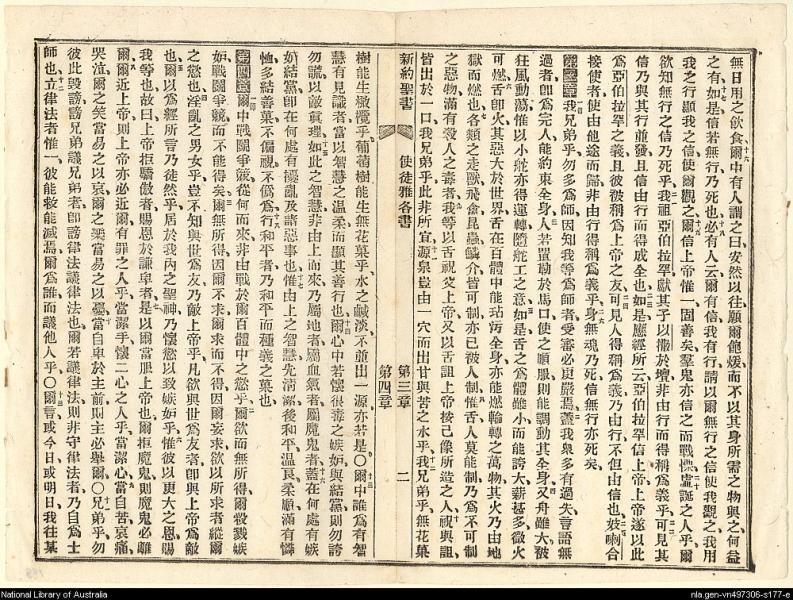 無日用之飲食爾中有人謂之曰安然以往願爾飽煖而不以其身所需之物與之何益
之有如是信若無行乃死也必有人云爾有信我有行請以爾無行之信使我觀之我用
我之行顯我之信使爾觀之爾信上帝惟一固善矣羣鬼亦信之而戰慄虛誕之人乎爾
欲知無行之信乃死乎我祖亞伯拉罕獻其子以撒於壇非由行而得稱爲義乎可見其
信乃與其行並發且信由行而得成全也如是應經所云亞伯拉罕信上帝上帝遂以此
爲亞伯拉罕之義且彼被稱爲上帝之友可見人得稱爲義乃由行不但由信也妓喇合
接使者使由他途而歸非由行得稱爲義乎身無魂乃死信無行亦死矣
第三章我兄弟乎勿多爲師因知我等爲師者受審必更嚴焉蓋我衆多有過失言語無
過者卽爲完人能約束全身人若置勒於馬口使之順服則能調動其全身又舟雖大被
狂風動蕩惟以小舵亦得運轉隨舵工之意如是舌之爲體雖小而能誇大薪甚多微火
可燃舌卽火其惡大於世界舌在百體中能玷污全身亦能燃輪轉之萬物其火乃由地
獄而燃也各類之走獸飛禽昆蟲鱗介皆可制亦已被人制惟舌人莫能制乃爲不可制
之惡物滿有殺人之毒者我等以舌祝父上帝又以舌詛上帝按己像所造之人祝與詛
皆出於一口我兄弟乎此非所宜源泉豈由一穴而出甘與苦之水乎我兄弟乎無花菓
新約聖書 使徒雅各書 第三章 第四章 二
樹能生橄欖乎葡萄樹能生無花菓乎水之鹹淡不並出一源亦若是〇爾中誰爲有智
慧有見識者當以智慧之溫柔而顯其善行也爾心中若懷很毒之嫉妬與結黨則勿誇
勿謊以敵眞理如此之智慧非由上而來乃屬地者屬血氣者屬魔鬼者蓋在何處有嫉
妬結黨卽在何處有擾亂及諸惡事也惟由上之智慧先清潔後和平溫良柔順滿有憐
恤多結善菓不偏視不僞爲行和平者乃和平而種義之菓也
第四章爾中戰鬭爭競從何而來非由戰於爾百體中之慾乎爾欲而無所得爾殺戮嫉
妬戰鬭爭競而不能得矣爾無所得因爾不求爾求而不得因爾妄求欲以所求者縱爾
之慾也淫亂之男女乎豈不知與世爲友乃敵上帝乎凡欲與世爲友者卽與上帝爲敵
也爾以爲經所言乃徒然乎居於我內之聖神乃懷慾以致嫉妬乎惟彼以更大之恩賜
我等也故曰上帝拒驕傲者賜恩於謙卑者是以爾當服上帝也爾拒魔鬼則魔鬼必離
爾爾近上帝則上帝亦必近爾有罪之人乎當潔手懷二心之人乎當潔心當自苦哀痛
哭泣爾之笑當易之以哀爾之樂當易之以憂當自卑於主前則主必舉爾〇兄弟乎勿
彼此毀謗謗兄弟議兄弟者卽謗律法議律法也爾若議律法則非守律法者乃自爲士
師也立律法者惟一彼能救能滅焉爾爲誰而議他人乎〇爾言或今日或明日我往某
National Library of Australia
nla.gen-vn497306-s177-e